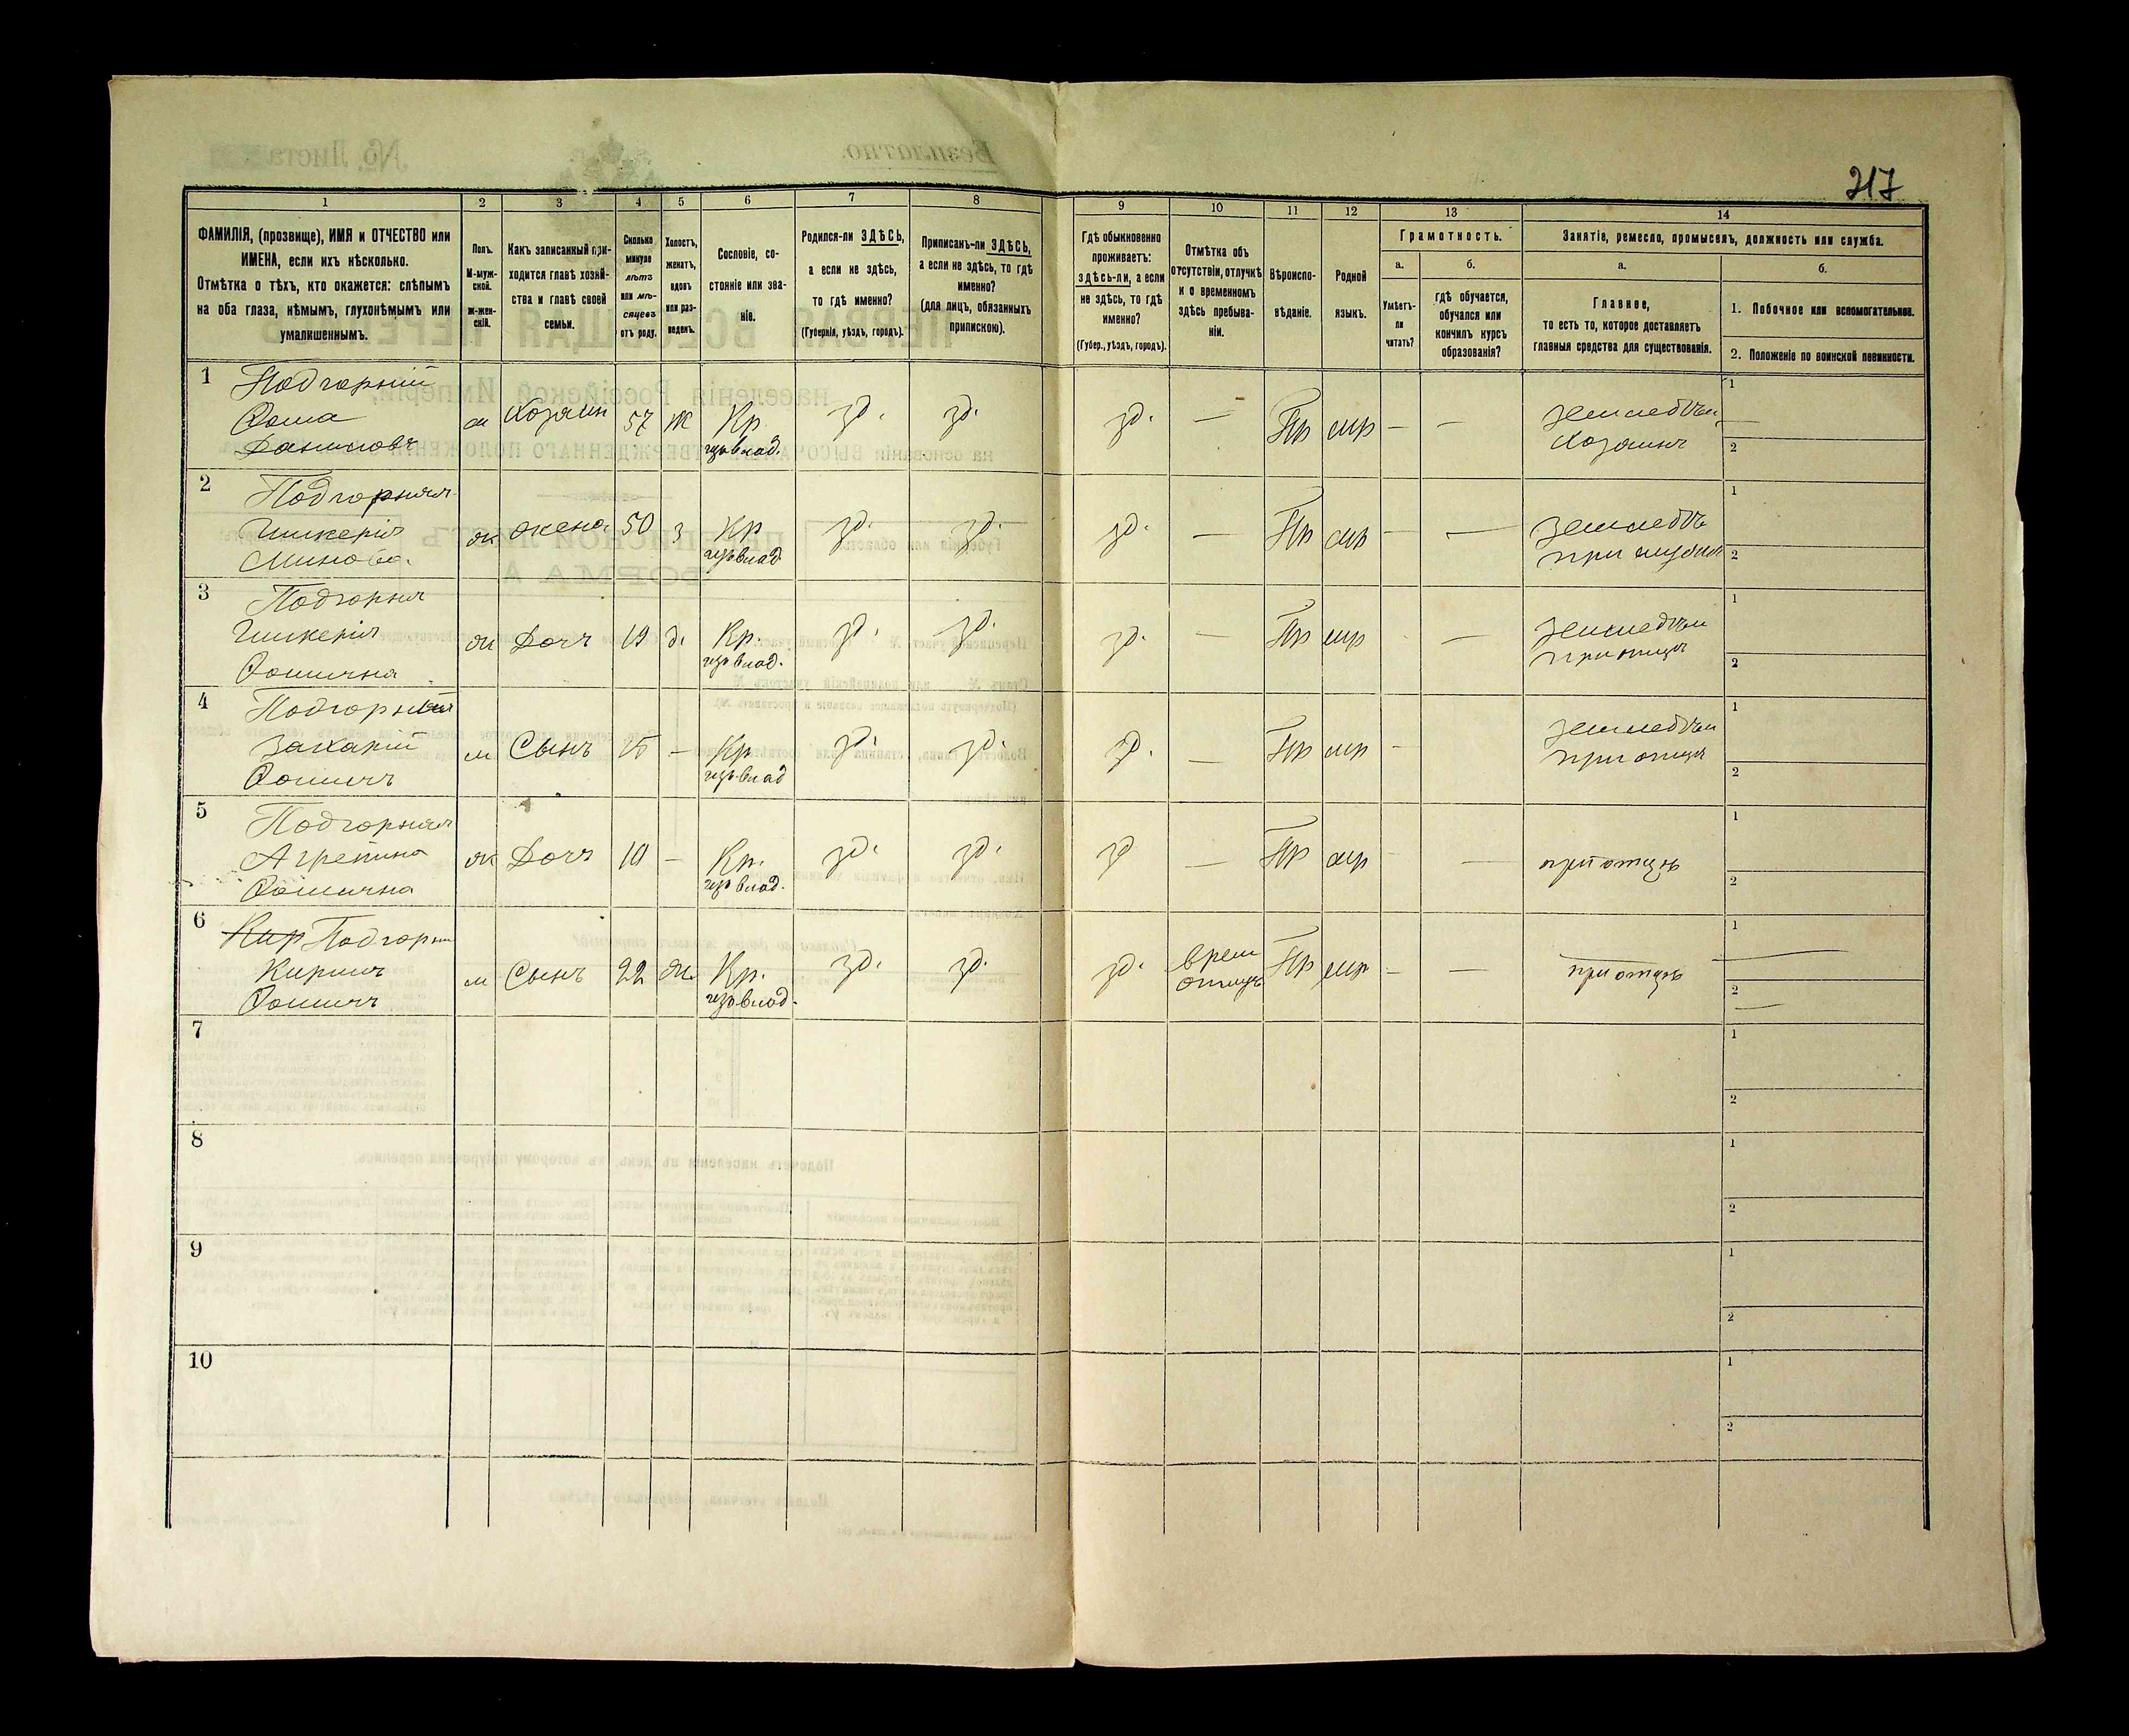 217
1 2 3 4 5 6 7 8 9 10 11 12 13 14
ФАМИЛІЯ, (прозвище), ИМЯ и ОТЧЕСТВО или
ИМЕНА, если ихъ нѣсколько.
Отмѣтка о тѣхъ, кто окажется: слѣпымъ
на оба глаза, нѣмымъ, глухонѣмымъ или
умалишеннымъ.
Полъ.
М-муж-
ской.
Ж-жен-
скій.
Какъ записанный при-
ходится главѣ хозяй-
ства и главѣ своей
семьи.
Сколько
минуло
лѣтъ
или мѣ-
сяцевъ
отъ роду.
Холостъ,
женатъ,
вдовъ
или раз-
веденъ.
Сословіе, со-
стояніе или зва-
ніе.
Родился-ли ЗДѢСЬ,
а если не здѣсь,
то гдѣ именно?
(Губернія, уѣздъ, городъ).
Приписанъ-ли ЗДѢСЬ,
а если не здѣсь, то гдѣ
именно?
(для лицъ, обязанныхъ
припискою).
Гдѣ обыкновенно
проживаетъ:
здѣсь-ли, а если
не здѣсь, то гдѣ
именно?
(Губер., уѣздъ, городъ).
Отмѣтка объ
отсутствіи, отлучкѣ
и о временномъ
здѣсь пребыва-
ніи.
Вѣроиспо-
вѣданіе.
Родной
языкъ.
Грамотность.
а.
Умѣетъ-
ли
читать?
б.
гдѣ обучается,
обучался или
кончилъ курсъ
образованія?
Занятіе, ремесло, промыселъ, должность или служба.
а.
Главное,
то есть то, которое доставляетъ
главныя средства для существованія.
б.
1. Побочное или вспомогательное.
2. Положеніе по воинской повинности.
1 Подгорній м Хозяин 57 ж Кр зд. зд. зд. — Пр мр — — 1
Фома
Даниловъ Хозяинъ 2
2 Подгорная ж жена 50 з Кр зд. зд. зд. — Пр мр — — 1
Гликерія
2
3 Подгорная ж Дочь 19 д. Кр. зд. зд. зд. — Пр мр — 1
Гликерія
Фомична 2
4 м Сынъ 15 — Кр зд. зд. зд. — Пр мр — 1
Захарій при отцѣ
Фомичъ 2
5 Подгорная ж Дочь 10 — Кр. зд. зд. зд — Пр мр — при отцѣ 1
Агрепина
Фомична 2
6 Кир Подгорни м Сынъ 22 ж. Кр. зд. зд. зд. врем Пр мр — — при отцѣ 1
Кирилъ
Фомичъ 2
7 1
2
8 1
2
9 1
2
10 1
2